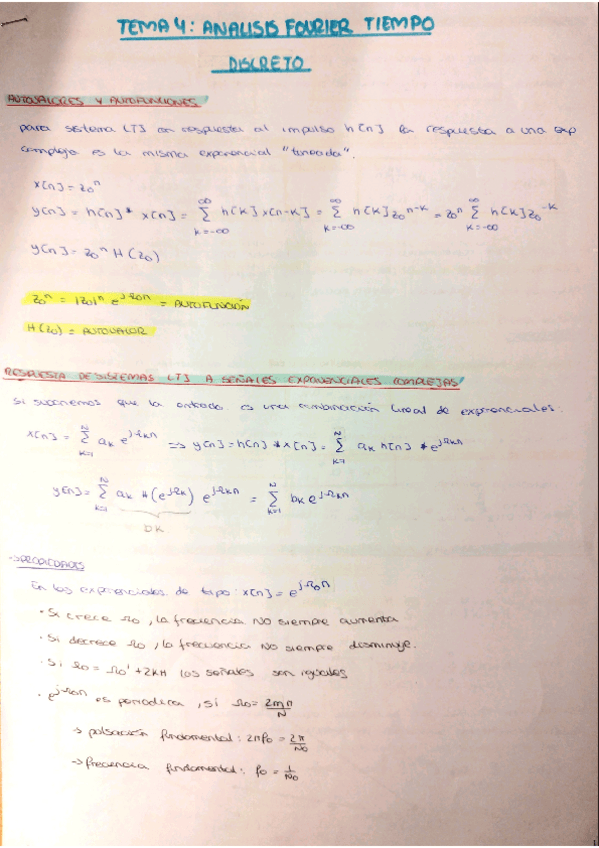 TEMA 4: ANALISIS FOURIER TIEMPO
DISCRETO
AUTOVALORES Y AUTOFUNCIONES
para sistema LTI con respuesta al impulso h[n] la respuesta a una exp
compleja es la misma exponencial "tuneada".
x[n] = z₀ⁿ
y[n] = h[n] * x[n] = ∑_{k=-∞}^{∞} h[k] x[n-k] = ∑_{k=-∞}^{∞} h[k] z₀^{n-k} = z₀ⁿ ∑_{k=-∞}^{∞} h[k] z₀^{-k}
y[n] = z₀ⁿ H(z₀)
z₀ⁿ = |z₀|ⁿ e^{jΩ₀n} = AUTOFUNCIÓN
H(z₀) = AUTOVALOR
RESPUESTA DE SISTEMAS LTI A SEÑALES EXPONENCIALES COMPLEJAS
Si suponemos que la entrada es una combinación lineal de exponenciales:
x[n] = ∑_{k=1}^{N} aₖ e^{jΩₖn} ⇒ y[n] = h[n] * x[n] = ∑_{k=1}^{N} aₖ h[n] * e^{jΩₖn}
y[n] = ∑_{k=1}^{N} aₖ H(e^{jΩₖ}) e^{jΩₖn} = ∑_{k=1}^{N} bₖ e^{jΩₖn}
bₖ
→ PROPIEDADES
En las exponenciales de tipo: x[n] = e^{jΩ₀n}
· Si crece Ω₀, la frecuencia NO siempre aumenta
· Si decrece Ω₀, la frecuencia NO siempre disminuye.
· Si Ω₀ = Ω₀' + 2kπ las señales son iguales
· e^{jΩ₀n} es periodica, si Ω₀ = 2mπ/N
→ pulsación fundamental: 2πf₀ = 2π/N₀
→ frecuencia fundamental: f₀ = 1/N₀